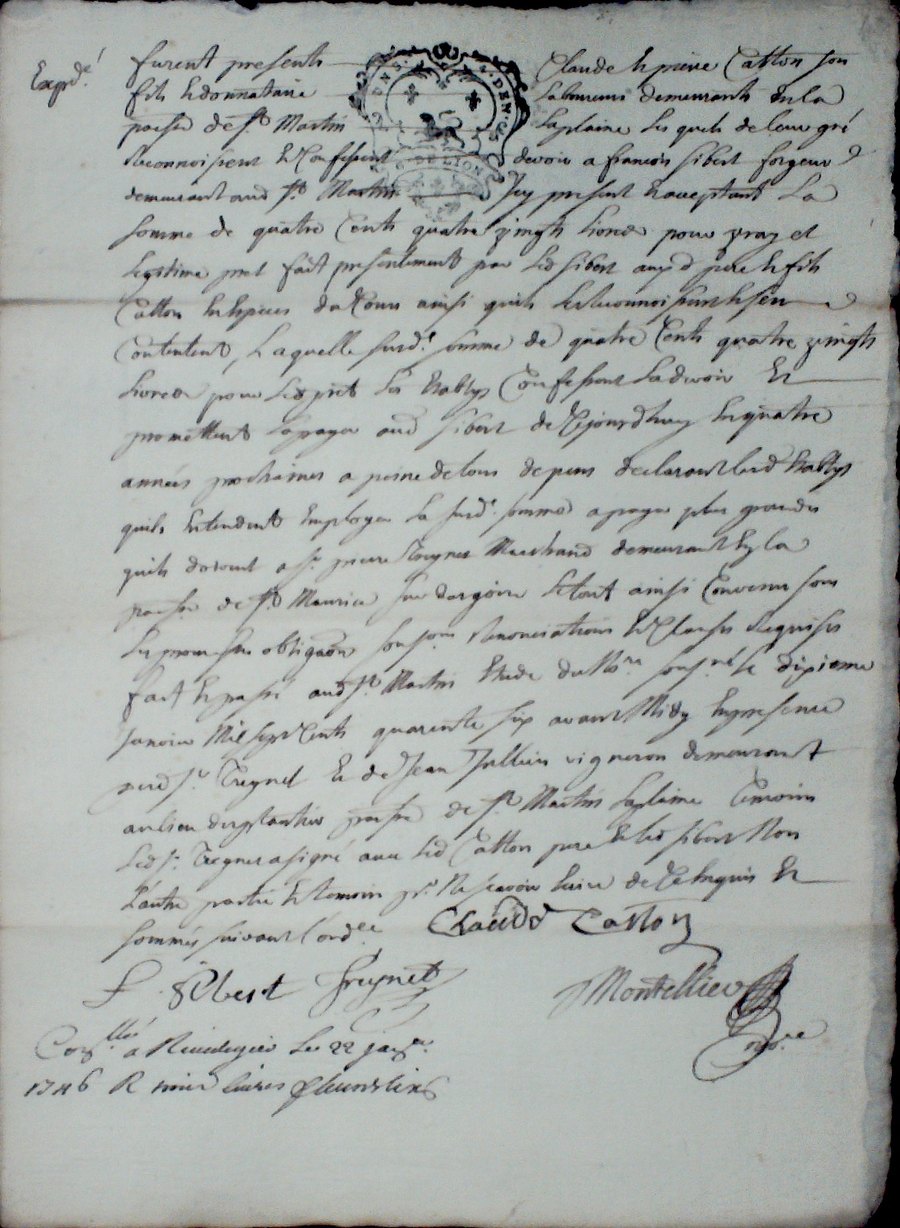 Expdé
furent presents Claude & pierre Caston son
fils & donnataire laboureurs demeurants en la
parsse de St Martin laplaine lesquels de leur gré
reconnoissent & Confessent devoir a francois sibert forgeur
demeurant aud St Martin Icy present & acceptant La
somme de quatre Cents quatre vingts livres pour vray et
legitime pret fait presentement par led sibert auxd pere & fils
Caston en Especes de Cours ainsi quils le reconnoissent & sen
Contentent, Laquelle susd. somme de quatre Cents quatre vingts
livres pour led pret les Establys Confessent la devoir Et
promettent la payer aud sibert de Cejourdhuy en quatre
années prochaines a peine de tous depens declarant lesd Establys
quils Entendent Employer la susd. somme a payer plus grande
quils doivent a sr pierre Treynet Marchand demeurant en la
parsse de St Maurice sur dargoire Létout ainsi Convenu sous
les promesses obligaon renonciations & Clauses requises
fait & passé aud St Martin Etude du Nore sousné le dixieme
janvier Mil sept Cents quarente six avant Midy En presence
dud sr Treynet Et de Jean Jullien vigneron demeurant
au lieu parsse de St Martin Laplaine temoins
Led sr Treynet a signé avec led Caston pere & led sibert Non
L'autre partie & temoin pr Ne scavoir Ecrire de Ce Enquis Et
sommés suivant l'ordce Claude Caston
f. sibert Treynet Montellier
Nore
Conllé a Rivedegier Le 22 janer
1746 R livres